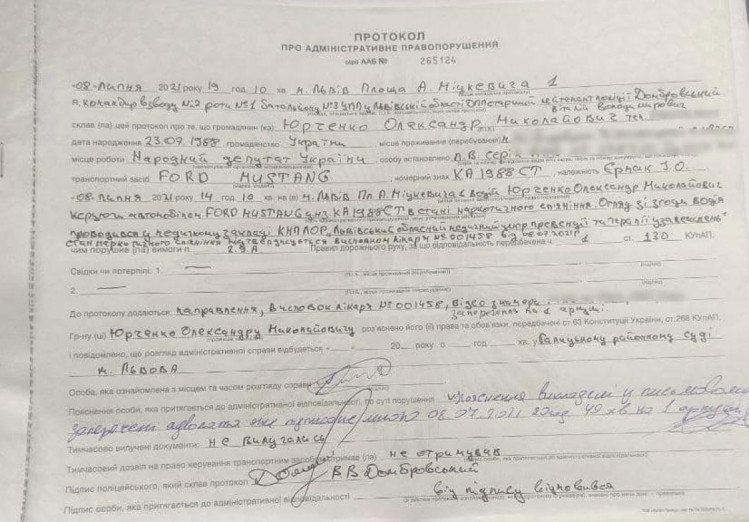 ПРОТОКОЛ
ПРО АДМІНІСТРАТИВНЕ ПРАВОПОРУШЕННЯ
серія ААБ № 265124
«08» липня 2021 року 19 год. 10 хв. м. Львів Площа А. Міцкевича 1
Я, командир взводу №2 роти №1 батальйону №3 УПП у Львівській області ДПП старший лейтенант поліції Домбровський
Віталій Володимирович
склав (ла) цей протокол про те, що громадянин (ка) Юрченко Олександр Миколайович тел.
дата народження 23.09.1988 громадянство України місце проживання (перебування)
місце роботи Народний депутат України, особу встановлено П.В. серія
транспортний засіб FORD MUSTANG, номерний знак КА1988СТ, належність Єрпак І.О.
«08» липня 2021 року 14 год. 10 хв. на (в) м. Львів Пл. А. Міцкевича 1 водій Юрченко Олександр Миколайович
керував автомобілем FORD MUSTANG днз КА1988СТ в стані наркотичного сп'яніння. Огляд зі згоди водія
проводився у медичному закладі КНП ЛОР "Львівський обласний медичний центр превенції та терапії узалежнень"
стан наркотичного сп'яніння підтверджується висновком лікаря № 001458 від 08.07.2021р
чим порушив (ла) вимоги п. 2.9.А Правил дорожнього руху, за що відповідальність передбачена ч. 1 ст. 130 КУпАП.
Свідки чи потерпілі: 1.
2.
До протоколу додаються: направлення, висновок лікаря № 001458, відео з камер
заперечення на 1 аркуші.
Гр-ну (ці) Юрченко Олександру Миколайовичу роз'яснено його (її) права та обов'язки, передбачені ст. 63 Конституції України, ст. 268 КУпАП,
і повідомлено, що розгляд адміністративної справи відбудеться « » 20 року о год. хв. у Галицькому районному суді
м. Львова
Особа, яка ознайомлена з місцем та часом розгляду справи
Пояснення особи, яка притягається до адміністративної відповідальності, по суті порушення пояснення викладені у письмових
запереченнях адвоката 08.07.2021 20 год. 49 хв. на 1 аркуші
Тимчасово вилучені документи: не вилучались
Тимчасовий дозвіл на право керування транспортним засобом отримав (ла) не отримував
Підпис поліцейського, який склав протокол В.В. Домбровський
Підпис особи, яка притягається до адміністративної відповідальності від підпису відмовився